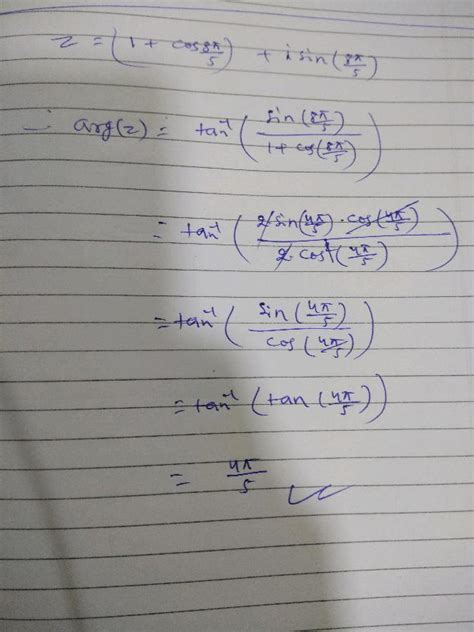 z = (1 + cos 8π/5) + i sin (8π/5)
∴ arg(z) = tan⁻¹ ( sin (8π/5) / 1 + cos (8π/5) )
= tan⁻¹ ( 2 sin (4π/5) · cos (4π/5) / 2 · cos² (4π/5) )
= tan⁻¹ ( sin (4π/5) / cos (4π/5) )
= tan⁻¹ ( tan (4π/5) )
= 4π/5